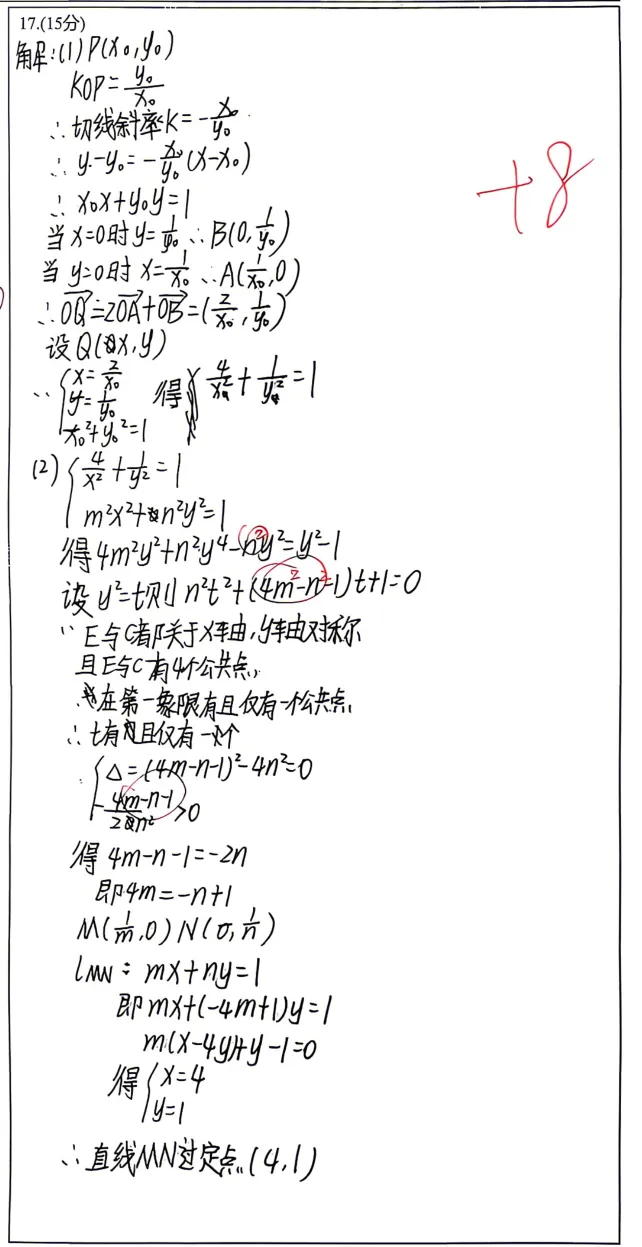 17.(15分)
解:(1)P(x₀,y₀)
KOP=y₀/x₀
∴切线斜率K=-x₀/y₀
∴y-y₀=-x₀/y₀(x-x₀)
∴x₀x+y₀y=1
+8
当x=0时y=1/y₀∴B(0,1/y₀)
当y=0时x=1/x₀∴A(1/x₀,0)
∴OQ=2OA+OB=(2/x₀,1/y₀)
设Q(x,y)
∵{x=2/x₀
y=1/y₀
x₀²+y₀²=1
得4/x²+1/y²=1
(2){4/x²+1/y²=1
m²x²+n²y²=1
得4m²y²+n²y⁴-n²y²=y²-1
设y²=t则n²t²+(4m²-n²-1)t+1=0
∵E与C都关于x轴,y轴对称
且E与C有4个公共点
∴在第一象限有且仅有一个公共点
∴t有且仅有一个
∴{Δ=(4m-n-1)²-4n²=0
-(4m-n-1)/2n²>0
得4m-n-1=-2n
即4m=-n+1
M(1/m,0)N(0,1/n)
lMN:mx+ny=1
即mx+(-4m+1)y=1
m(x-4y)+y-1=0
得{x=4
y=1
∴直线MN过定点(4,1)